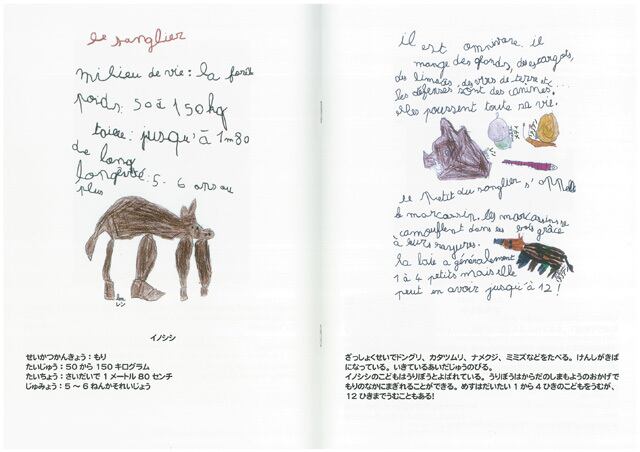 le sanglier
milieu de vie : la forêt
poids : 50 à 150 kg
taille : jusqu'à 1m80
de long
longévité : 5-6 ans ou
plus
レン
イノシシ
せいかつかんきょう：もり
たいじゅう：50 から 150 キログラム
たいちょう：さいだいで 1 メートル 80 センチ
じゅみょう：5 〜 6 ねんかそれいじょう
il est omnivore il
mange des glands, des escargots,
des limaces, des vers de terre etc...
les défenses sont des canines.
elles poussent toute sa vie.
le petit du sanglier s'appelle
le marcassin. les marcassins se
camouflent dans les bois grâce
à leurs rayures.
la laie a généralement
1 à 4 petits mais elle
peut en avoir jusqu'à 12 !
ざっしょくせいでドングリ、カタツムリ、ナメクジ、ミミズなどをたべる。けんしがきば
になっている。いきているあいだじゅうのびる。
イノシシのこどもはうりぼうとよばれている。うりぼうはからだのしまもようのおかげで
もりのなかにまぎれることができる。めすはだいたい 1 から 4 ひきのこどもをうむが、
12 ひきまでうむこともある!